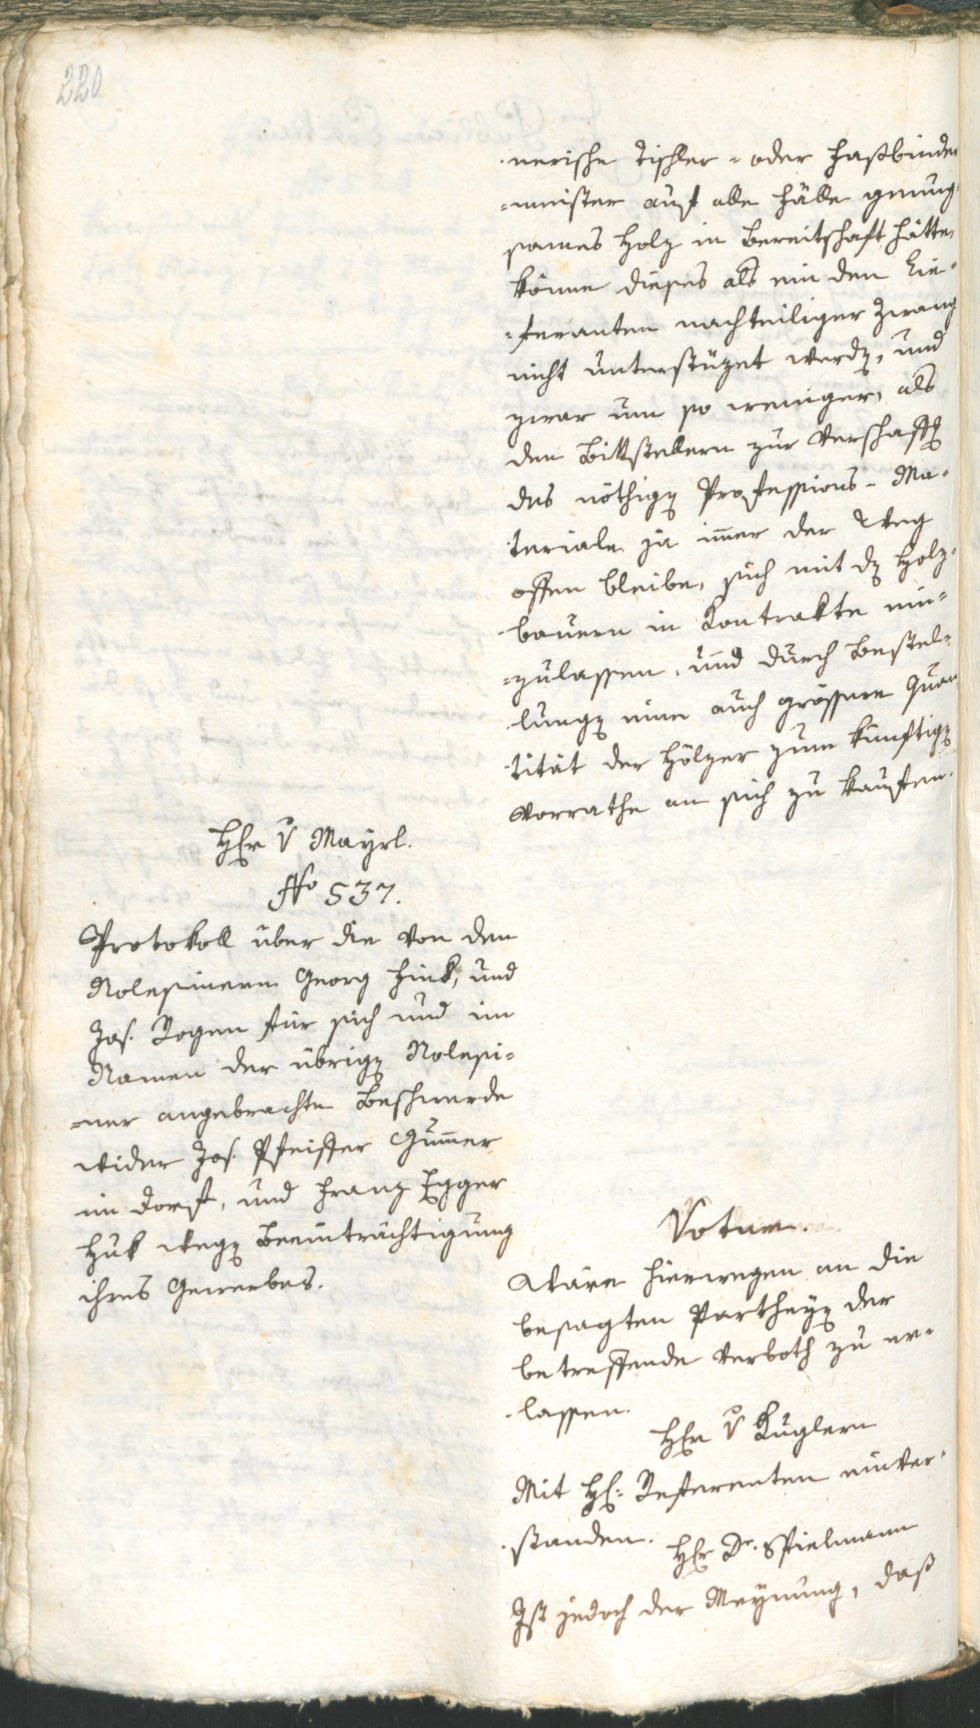 220
nerische Tischler- oder Faßbinder
=meister auf alle Fälle genug=
sames Holz in Bereitschaft hätte,
könne dieses als ein den Lie=
=feranten nachteiliger Zwang
nicht unterstüzet werdn, und
zwar um so weniger, als
den Bittstellern zur Verschaffg
des nöthign Professions-Ma=
teriale ja immer der Weg
offen bleibe, sich mit dn Holz=
bauern in Kontrakte ein=
=zulassen, und durch Bestel=
lungn eine auch grössere Quan
tität der Hölzer zum künftign
Vorrathe an sich zu kaufen.
Hr v Mayrl.
No 537.
Protokoll über die von den
Rolesinern Georg Hink, und
Jos. Rogen für sich und im
Namen der übrign Rolesi=
=ner angebrachte Beschwerde
wider Jos. Pfeiffer Gummer
im Dorf, und Franz Egger
Huk wegn Beeinträchtigung
ihres Gewerbes.
Votum.
Wäre hierwegen an die
besagten Partheyn der
betreffende Verboth zu er=
lassen.
Hr v Kuglern
Mit H: Referenten einver=
standen.
Hr Dr. Spielmann
Ist jedoch der Meynung, daß